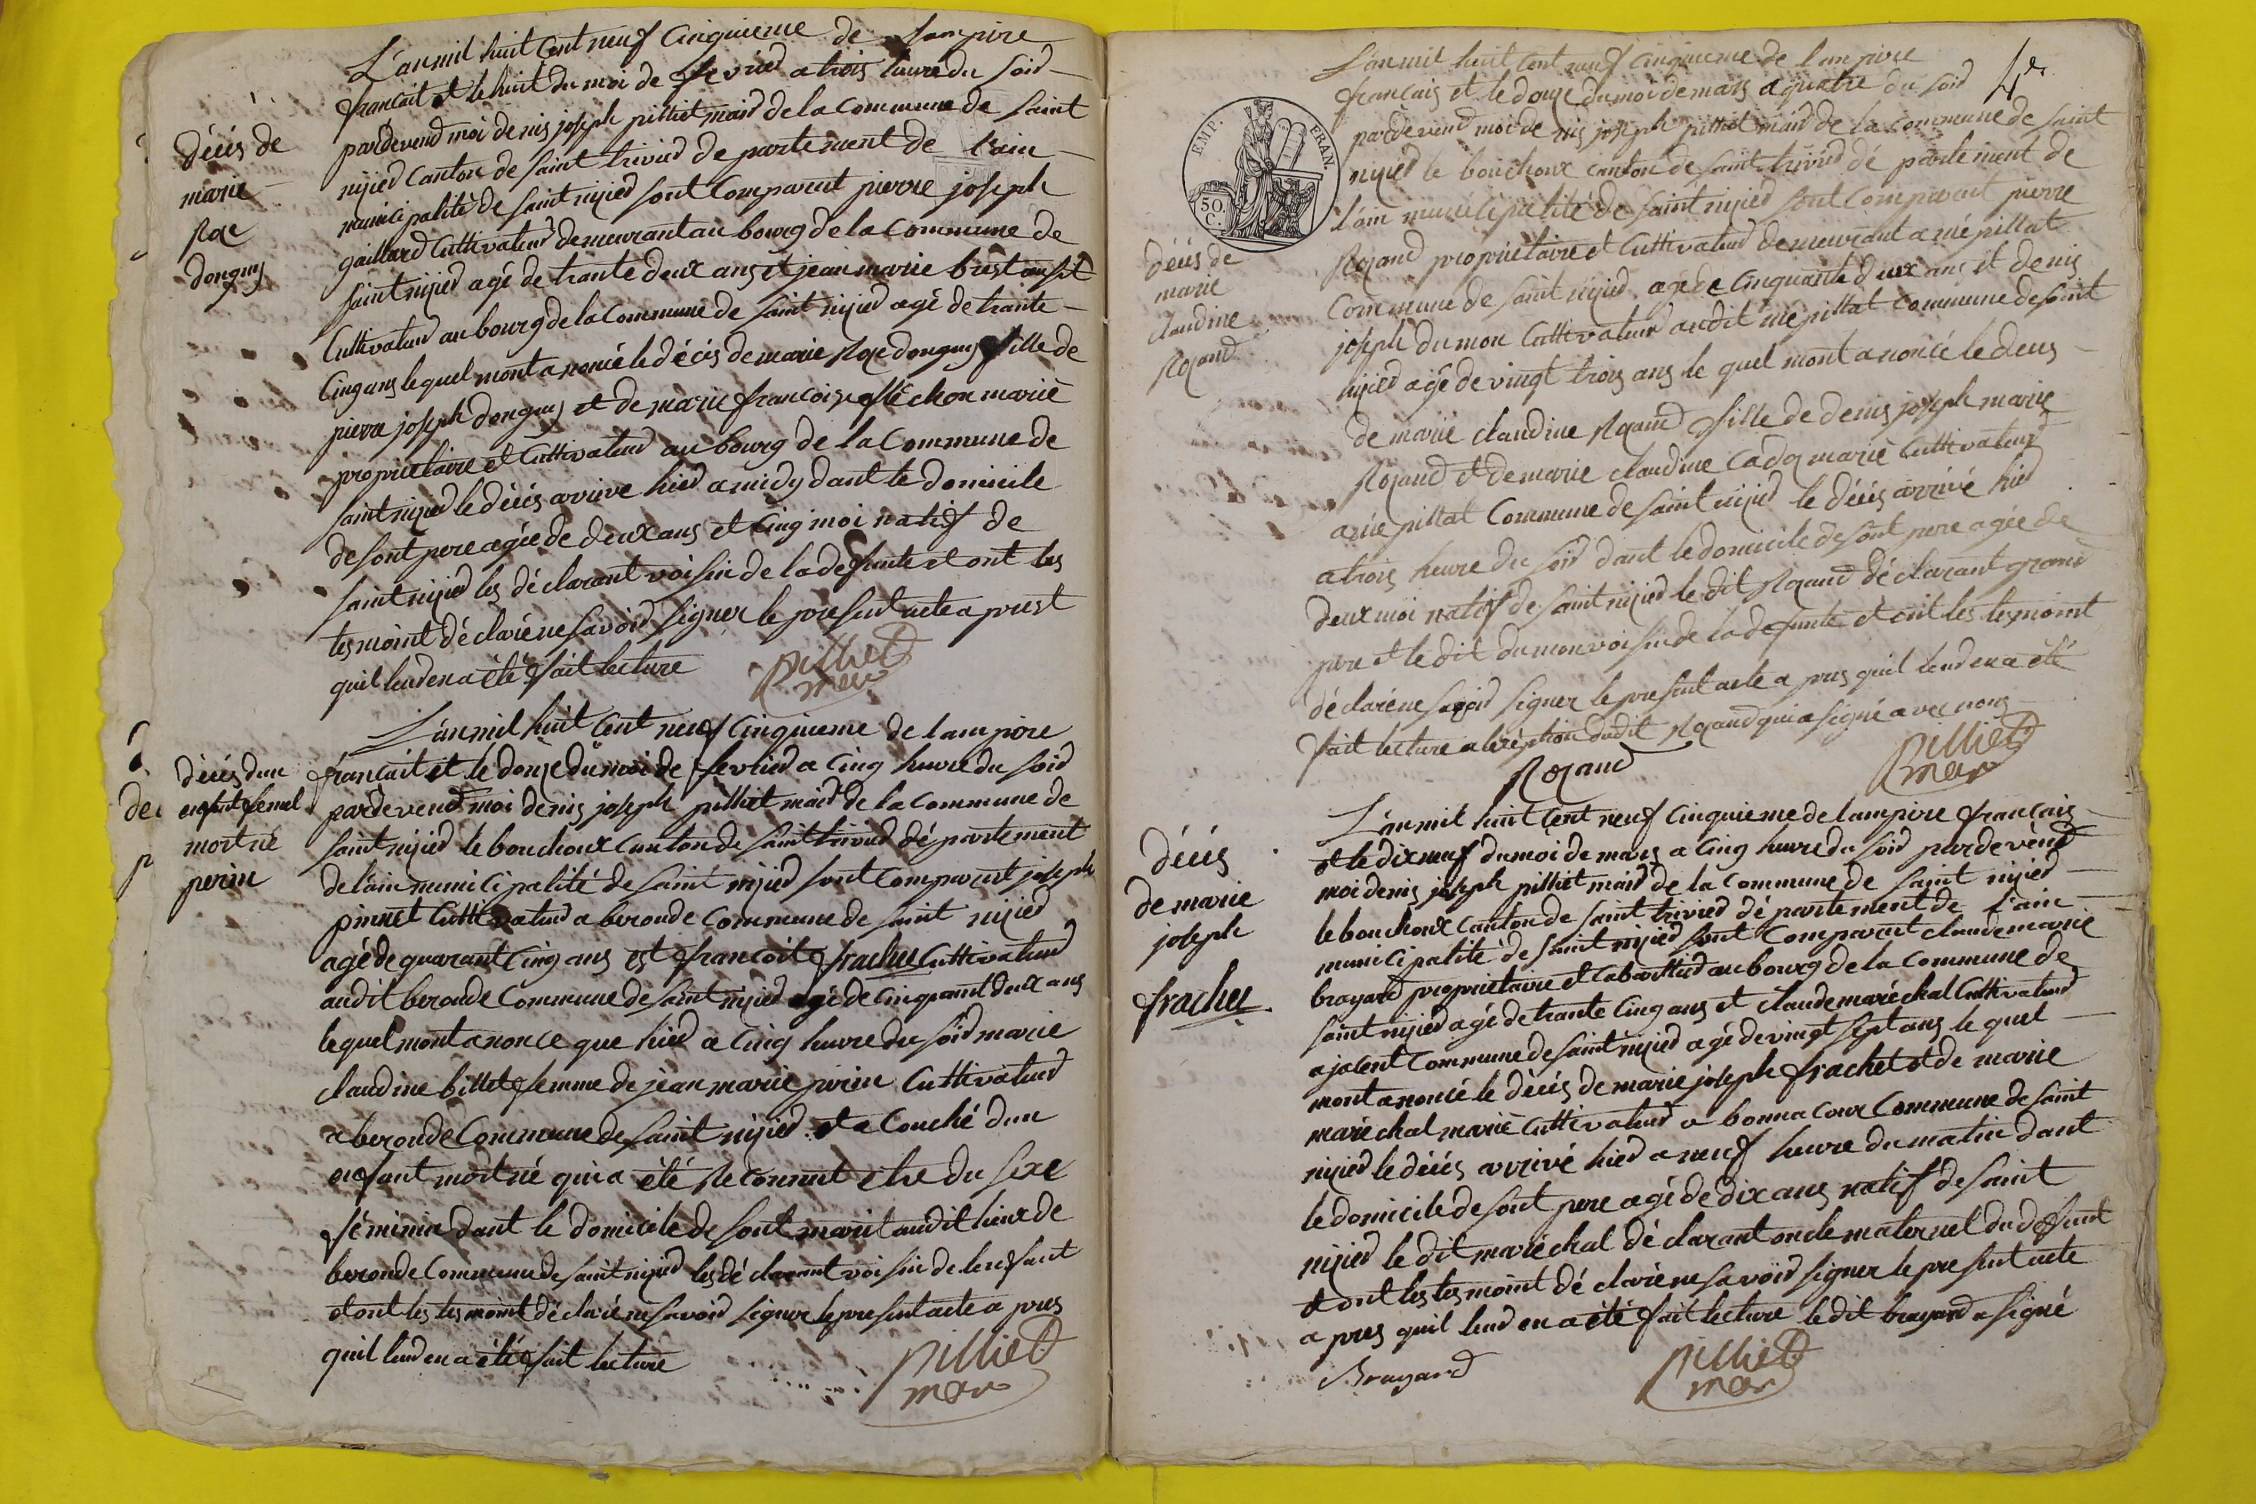 décés de
marie
Roze
donguy
L'an mil huit Cent neuf Cinquieme de lampire
francait et le huit du moi de fevried a trois heure du soid
pardevend moi denis joseph pilliet maid de la Commune de saint
nijied Canton de saint trivied de partement de lain
municipalité de saint nijied sont Comparent pierre joseph
gaillard Cultivateud demeurant au bourg de la Commune de
saint nijied agé de trante deux ans et jean marie brest
Cultivateud au bourg de la Commune de saint nijied agé de trante
Cinq ans lequel mont anoncé le décés de marie Roze donguy fille de
pierre joseph donguy et de marie francoize fléchon marié
proprietaire et Cultivateud au bourg de la Commune de
saint nijied le décés arrive hied a midy dant le domicile
de sont pere agée de deux ans et Cinq moi natif de
saint nijied les déclarant voisin de la defunte et ont les
tesmoint déclaré ne savoid signer le present acte a prest
quil leud en a été fait lecture
pilliet
mere
décés dun
enfant femel
mort né
perin
L'an mil huit Cent neuf Cinquieme de lampire
francait et le douze du moi de fevried a Cinq heure du soid
pardevend moi denis joseph pilliet maid de la Commune de
saint nijied le bouchoux Canton de saint trivied département
de lain municipalité de saint nijied sont Comparent joseph
pinnet Cultivateud a beronde Commune de saint nijied
agé de quarant Cinq ans est francoit frachet Cultivateud
audit beronde Commune de saint nijied agé de Cinquant deux ans
lequel mont anonce que hied a Cinq heure du soid marie
claudine billet femme de jean marie perin Cultivateud
a beronde Commune de saint nijied et a Couché dun
enfant mort né qui a été Reconnut etre du sexe
féminin dant le domicile de sont marit audit lieux de
beronde Commune de saint nijied les déclarant voisin de lenfant
et ont les tesmoint déclaré ne savoid signer le present acte a pres
quil leud en a été fait lecture
pilliet
mere
4e
EMP. FRAN.
50.
C.
décés de
marie
claudine
Rozand
L'an mil huit Cent neuf Cinquieme de lampire
francais et le douze du moi de mars a quatre du soid
pardevend moi denis joseph pilliet maid de la Commune de saint
nijied le bouchoux canton de saint trivied dé partement de
l'ain municipalité de saint nijied sont Comparent pierre
Rozand proprietaire et Cultivateud demeurant a mépillat
Commune de saint nijied agé de Cinquante deux ans et denis
joseph dumon Cultivateud audit mépillat Commune de saint
nijied agé de vingt trois ans le quel mont anoncé le deces
de marie claudine Rozand fille de denis joseph marie
Rozand et de marie claudine Cadoz marié Cultivateud
a mépillat Commune de saint nijied le décés arrivé hied
a trois heure du soid dant le domicile de sont pere agée de
deux moi natif de saint nijied le dit Rozand déclarant grand
pere et le dit dumon voisin de la defunte et ont les tesmoint
déclaré ne savoid signer le present acte a pres quil leud en a été
fait lecture a lexeption dudit Rozand qui a signé avec nous
Rozand
pilliet
mere
décés
de marie
joseph
frachet.
L'an mil huit Cent neuf Cinquieme de lampire francais
et le dix neuf du moi de mars a Cinq heure du soid pardevend
moi denis joseph pilliet maid de la Commune de saint nijied
le bouchoux Canton de saint trivied dé partement de l'ain
municipalité de saint nijied sont Comparent claude marie
brayard proprietaire et Cabarttied au bourg de la Commune de
saint nijied agé de trante Cinq ans et claude maréchal Cultivateud
a jalent Commune de saint nijied agé de vingt sept ans le quel
mont anoncé le décés de marie joseph frachet et de marie
maréchal marié Cultivateud a bonnacour Commune de saint
nijied le décés arrivé hied a neuf heure du matin dant
le domicile de sont pere agé de dix ans natif de saint
nijied le dit maréchal déclarant oncle maternel du defunt
et ont les tesmoint déclaré ne savoid signer le present acte
a pres quil leud en a été fait lecture le dit brayard a signé
Brayard
pilliet
mere